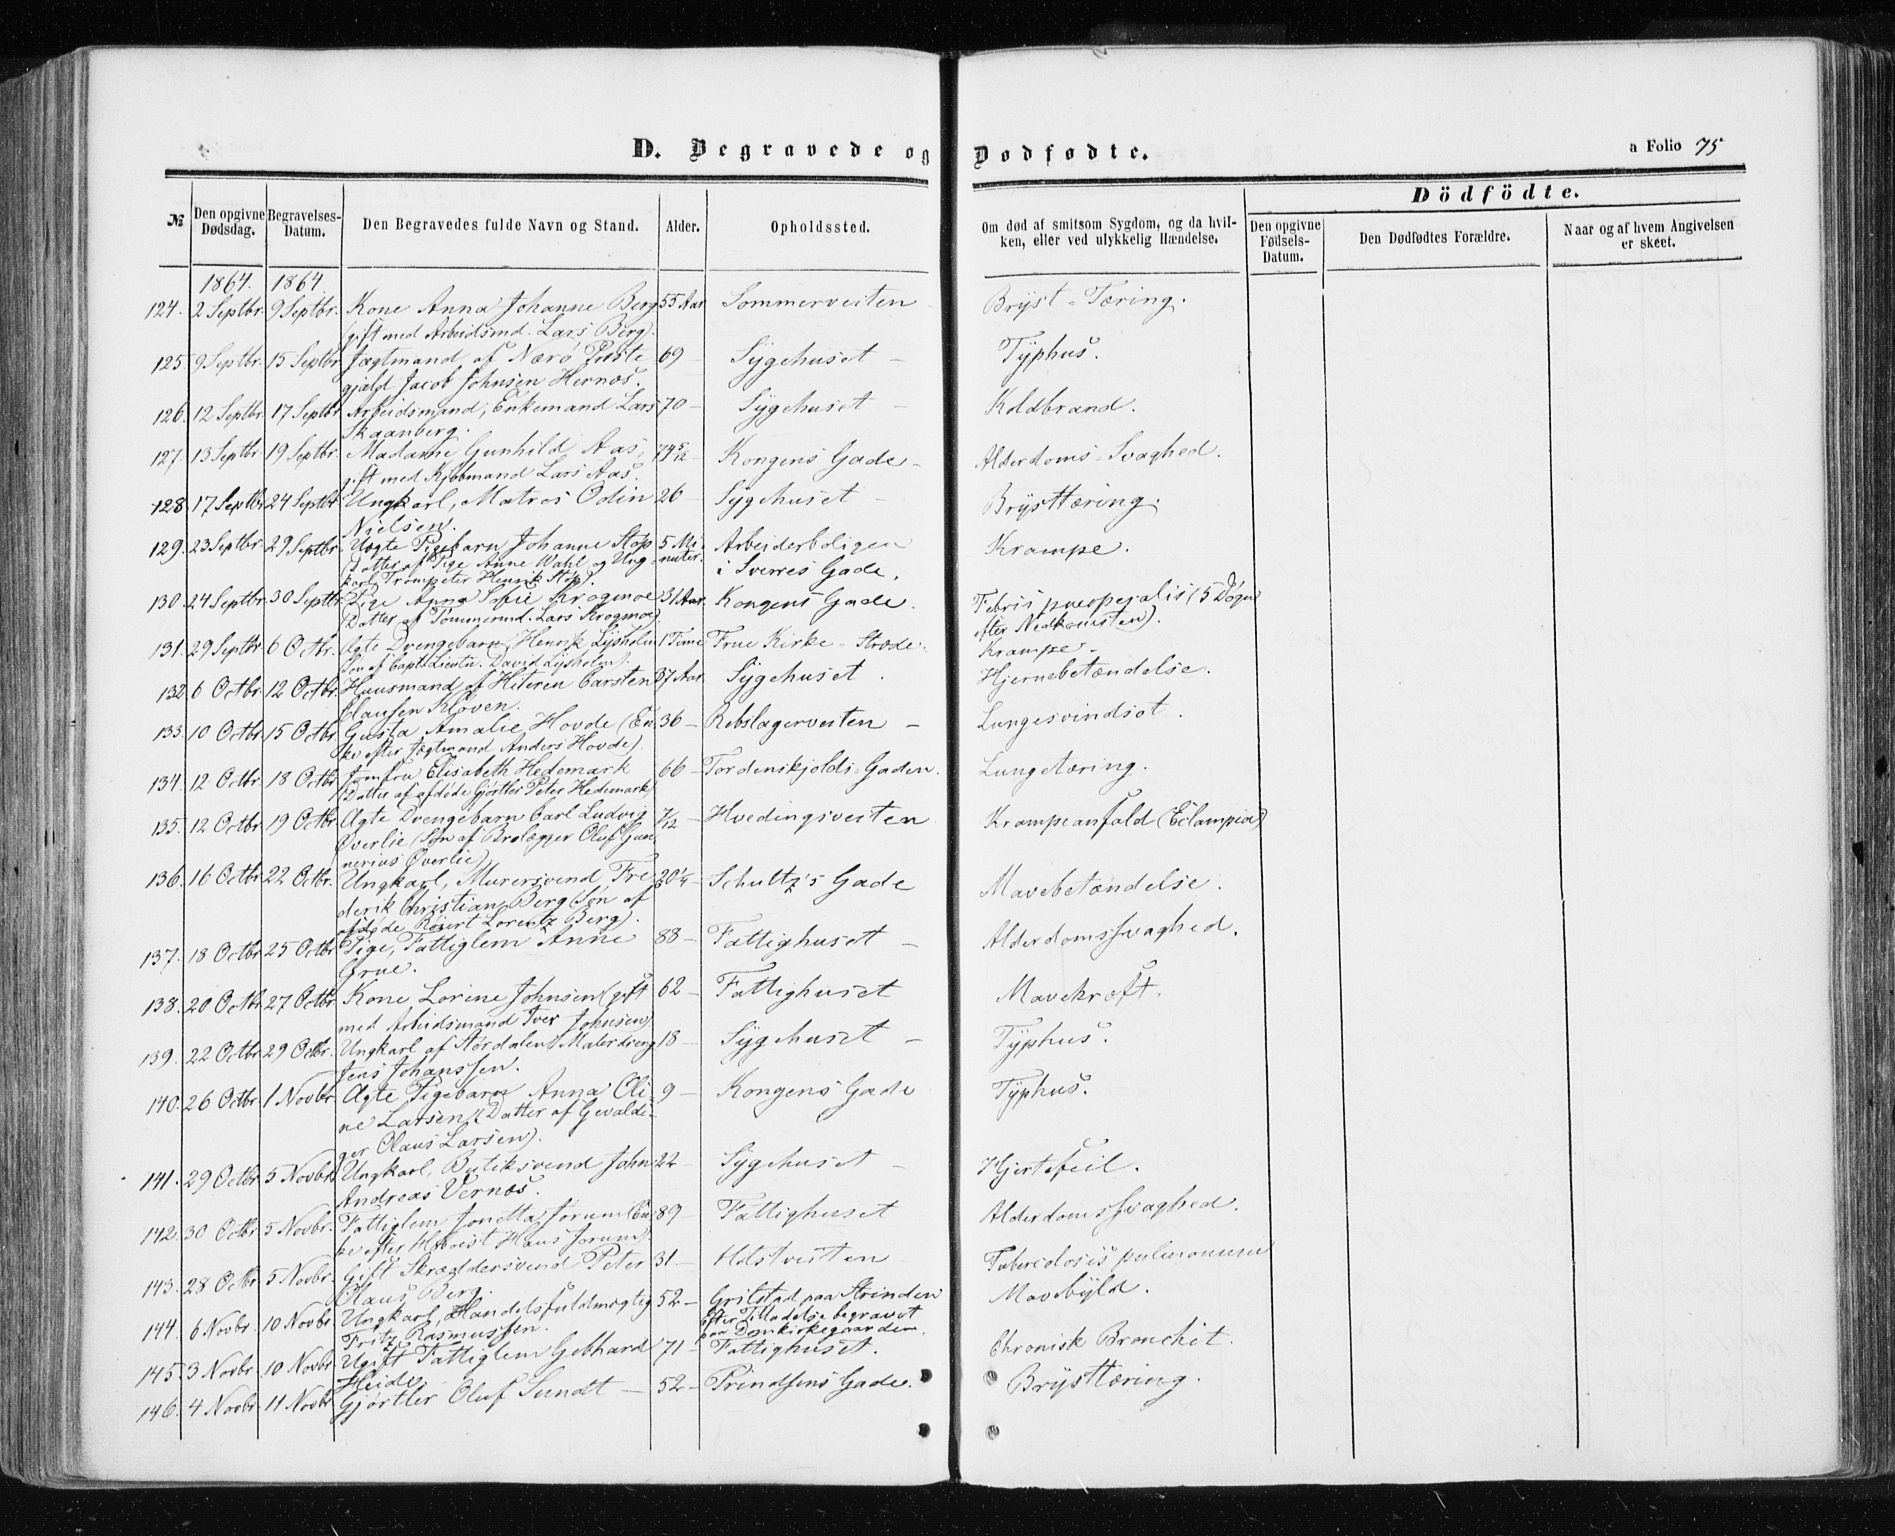 D. Begravede og Dødfødte.
a Folio 75
Dödfödte.
№
Den opgivne Dødsdag.
Begravelses-Datum.
Den Begravedes fulde Navn og Stand.
Alder.
Opholdssted.
Om død af smitsom Sygdom, og da hvilken, eller ved ulykkelig Hændelse.
Den opgivne Fødsels-Datum.
Den Dødfødtes Forældre.
Naar og af hvem Angivelsen er skeet.
1864. 1864.
124. 2 Septbr. 9 Septbr. Kone Anna Johanne Berg 55 Aar Sommerveiten Bryst-Tæring.
(gift med Arbeidsmd. Lars Berg).
125. 9 Septbr. 15 Septbr. Jægtmand af Nærö Præste 69 — Sygehuset — Typhus.
gjæld Jacob Johnsen Hernæs.
126. 12 Septbr. 17 Septbr. Arbeidsmand, Enkemand Lars 70 — Sygehuset — Koldbrand.
Skaanberg.
127. 13 Septbr. 19 Septbr. Madame Gunhild Aas, 74 5/12 — Kongens Gade — Alderdoms-Svaghed.
gift med Kjøbmand Lars Aas.
128. 17 Septbr. 24 Septbr. Ungkarl, Matros Odin 26 — Sygehuset — Brysttæring.
Nielsen.
129. 23 Septbr. 29 Septbr. Uægte Pigebarn Johanne Støp 5 Mi- Arbeiderboligen Krampe.
(Datter af Pige Anne Wahl og Ung- nuter. i Sverres Gade.
karl Trompeter Henrik Støp).
130. 24 Septbr. 30 Septbr. Pige Anna Sofie Krogmoe 31 Aar. Kongens Gade. Febris puerperalis (5 Døgn
(Datter af Tømmermd. Lars Krogmoe) efter Nedkomsten).
131. 29 Septbr. 6 Octbr. Ægte Drengebarn Henrik Lysholm 1 Time Frue Kirke-Stræde. Krampe.
Søn af Capt. Lieutn. David Lysholm).
132. 6 Octbr. 12 Octbr. Huusmand af Hiteren Carsten 37 Aar. Sygehuset. Hjernebetændelse.
Clausen Kløven.
133. 10 Octbr. 15 Octbr. Gusta Amalie Hovde (En- 36 — Rebslagerveiten — Lungesvindsot.
ke efter Jægtmand Anders Hovde).
134. 12 Octbr. 18 Octbr. Jomfru Elisabeth Hedemark 66 — Tordenskjolds-Gaden. Lungetæring.
(Datter af afdøde Gjørtler Peter Hedemark)
135. 12 Octbr. 19 Octbr. Ægte Drengebarn Carl Ludvig 7/12 — Hvedingsveiten Krampeanfald (Eclampia)
Øverlie (Søn af Brolægger Oluf Gun-
nerius Øverlie).
136. 16 Octbr. 22 Octbr. Ungkarl, Murersvend, Fre- 20 1/4 — Schultz's Gade Mavebetændelse.
derik Christian Berg (Søn af
afdøde Lorentz Berg).
137. 18 Octbr. 25 Octbr. Pige, Fattiglem Anne 88 — Fattighuset — Alderdomssvaghed.
Grue.
138. 20 Octbr. 27 Octbr. Kone Lorine Johnsen (gift 62 — Fattighuset Mavekræft.
med Arbeidsmand Iver Johnsen)
139. 22 Octbr. 29 Octbr. Ungkarl af Størdalen Malerdreng 18 — Sygehuset — Typhus.
Jens Johanssen.
140. 26 Octbr. 1 Novbr. Ægte Pigebarn Anna Oli- 9 — Kongens Gade Typhus.
ne Larsen (Datter af Gevaldi-
ger Olaus Larsen).
141. 29 Octbr. 5 Novbr. Ungkarl, Butiksvend John 22 — Sygehuset — Hjertefeil.
Andreas Vernæs.
142. 30 Octbr. 5 Novbr. Fattiglem Jonetta Jorum (En- 89 — Fattighuset Alderdomssvaghed.
ke efter Hans Jorum)
143. 28 Octbr. 5 Novbr. Gift Skræddersvend Peter 31 — Holstveiten Tuberculosis pulmonum
Olaus Berg.
144. 6 Novbr. 10 Novbr. Ungkarl, Handelsfuldmægtig 52 — Grilstad paa Strinden Mavebyld.
Fritz Rasmussen. efter Tilladelse begravet
paa Domkirkegaarden.
145. 3 Novbr. 10 Novbr. Ugift Fattiglem Gebhard 71 — Fattighuset. Chronisk Bronchit.
Heide.
146. 4 Novbr. 11 Novbr. Gjørtler Oluf Sundt — 52 — Prindsens Gade. Brysttæring.